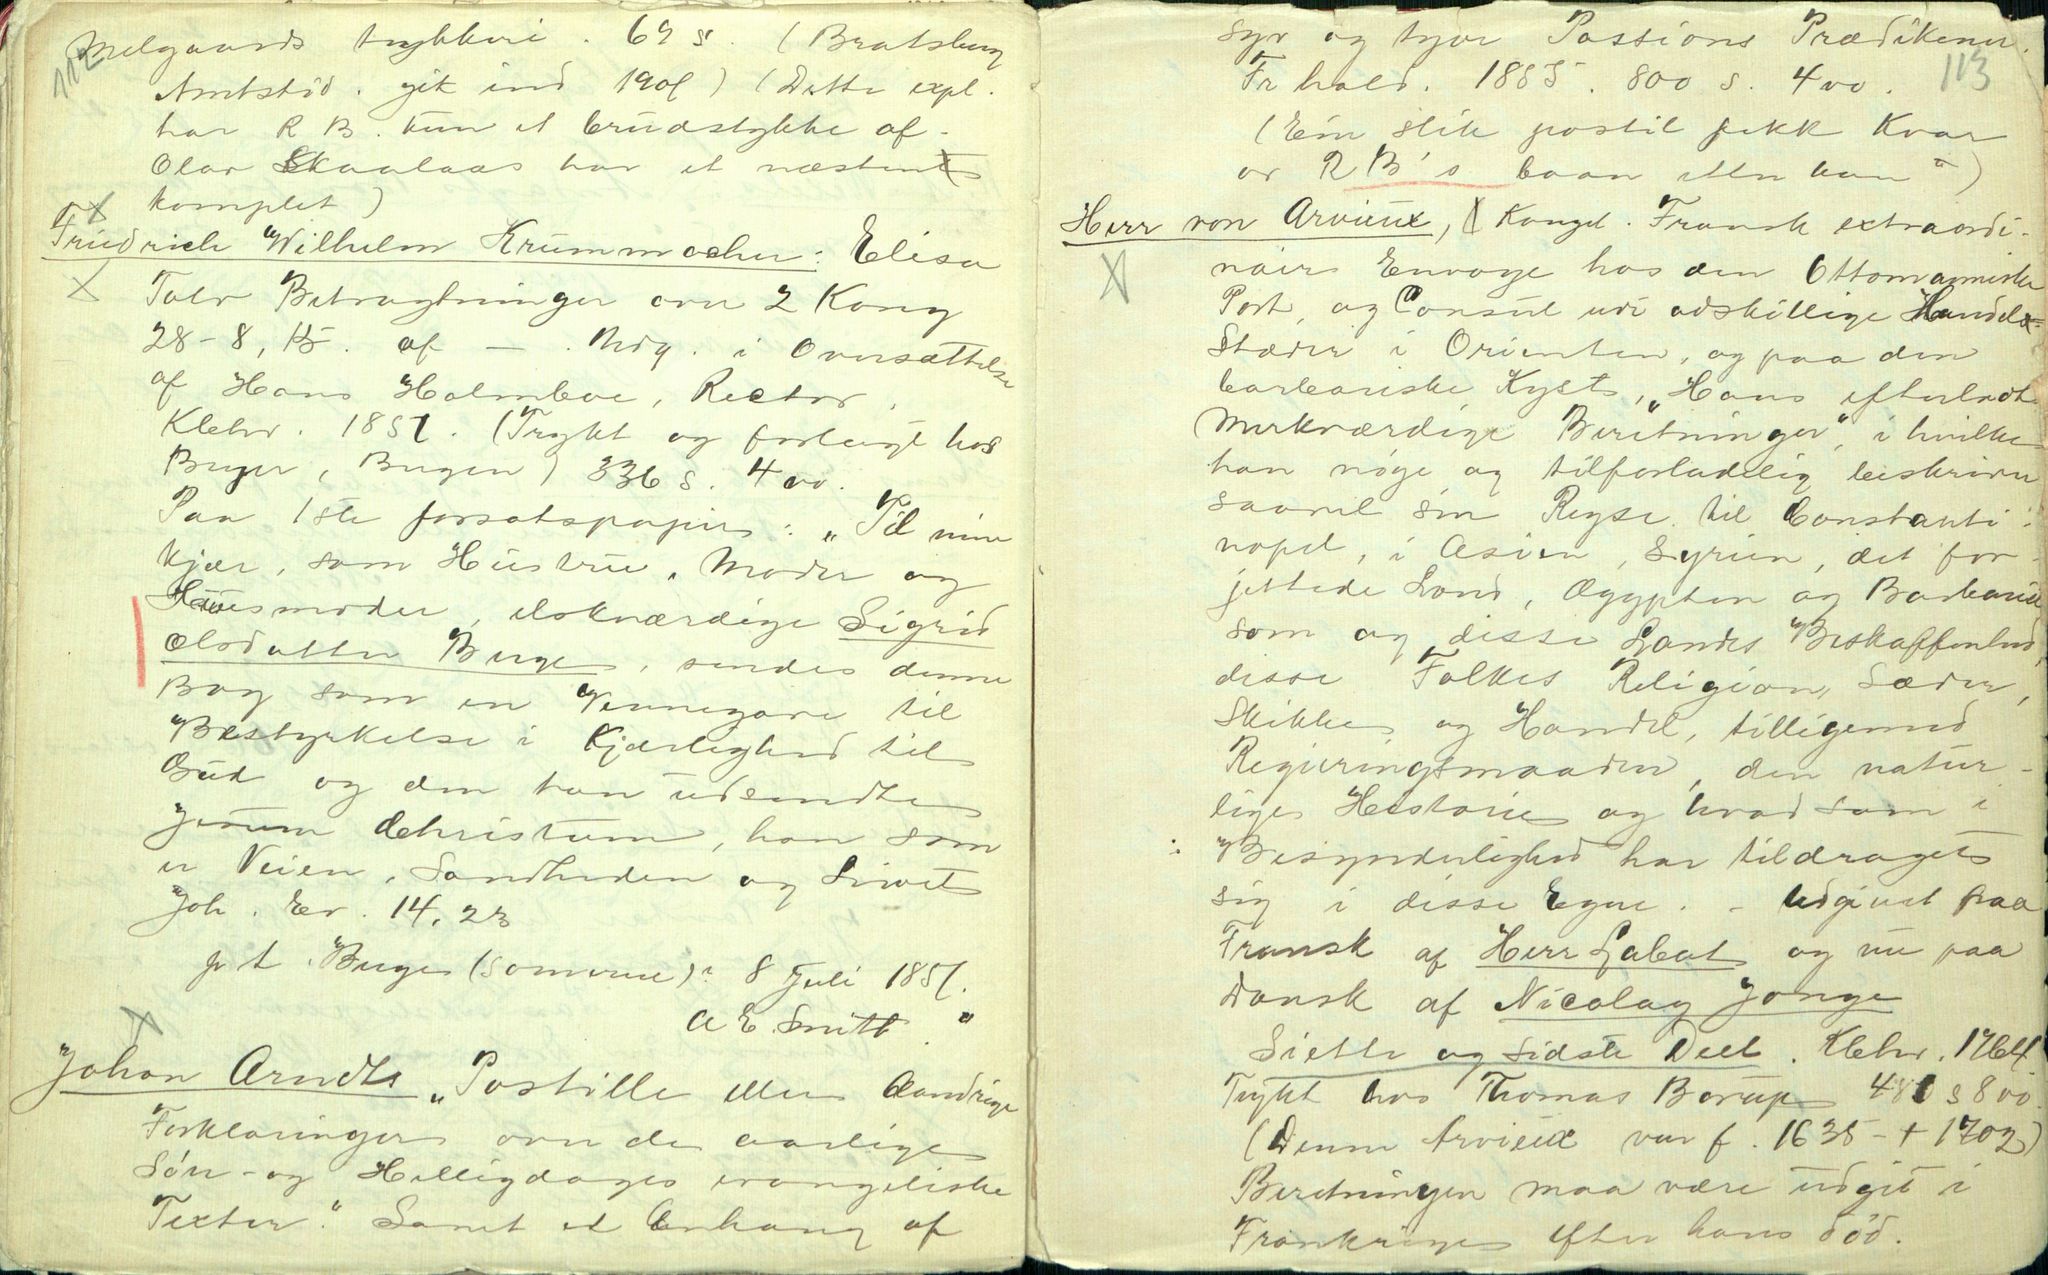 112
Melgaards trykkeri. 69 s. (Bratsberg
Amtstid. gik ind 1901) (Dette expl.
har R B. kun et brudstykke af.
Olav Skaalaas har et næsten
komplet)
Friedrich Wilhelm Krummacher: Elisa
Tolv Betragtninger over 2 Kong
28-8, 15. af — . Udg. i Oversættelse
af Hans Holmboe, Rector,
Kbhv. 1851. (Trykt og forlagt hos
Beyer, Bergen) 336 s. 4 vo.
Paa 1ste forsatspapir: „Til min
kjær, som Hustrue, Moder og
Huusmoder, elskværdige Sigrid
Olsdatter Berge, sendes denne
Bog som en Vennegave til
Bestyrkelse i Kjærlighed til
Gud og den han udsendte
Jesum Christum, han som
er Veien, Sandheden og Livet
Joh. Ev. 14, 23
p t. Berge 8 Juli 1851.
A E. Smitt. "
Johan Arndts „Postille eller Aandrige
Forklaringer over de aarlige
Søn- og Helligdages evangeliske
Texter." Samt et Anhang af
113
syv og tyve Passions Prædikener.
Fr hald. 1855. 800 s. 4 vo.
(Ein slik postil fekk Kvar
av R B's baan etter han")
Herr von Arvieux, Kongel. Fransk extraordi-
nair Envoye hos den Ottomanniske
Port, og Consul udi adskillige Handels-
Stæder i Orienten, og paa den
barbariske Kyst, „Hans efterladte
Merkværdige Beretninger", i hvilke
han nøye og tilforladelig beskriver
saavel sin Reyse til Constanti-
nopel, i Asien, Syrien, det for-
jettede Land, Ægypten og Barbariet
som og disse Landes Beskaffenhed,
disse Folkes Religion, Sæder,
Skikke og Handel, tilligemed
Regieringsmaaden, den natur-
lige Historie og hvad som i
Besynderlighed har tildraget
sig i disse Egne. - Udgivet paa
Fransk af Herr Labat og nu paa
Dansk af Nicolay Jonge
Siette og sidste Deel. Kbhv. 1764.
Trykt hos Thomas Borup 480 s 8 vo.
(Denne Arvieux var f. 1635 - + 1702)
Beretningen maa være udgit i
Frankrige efter hans død.